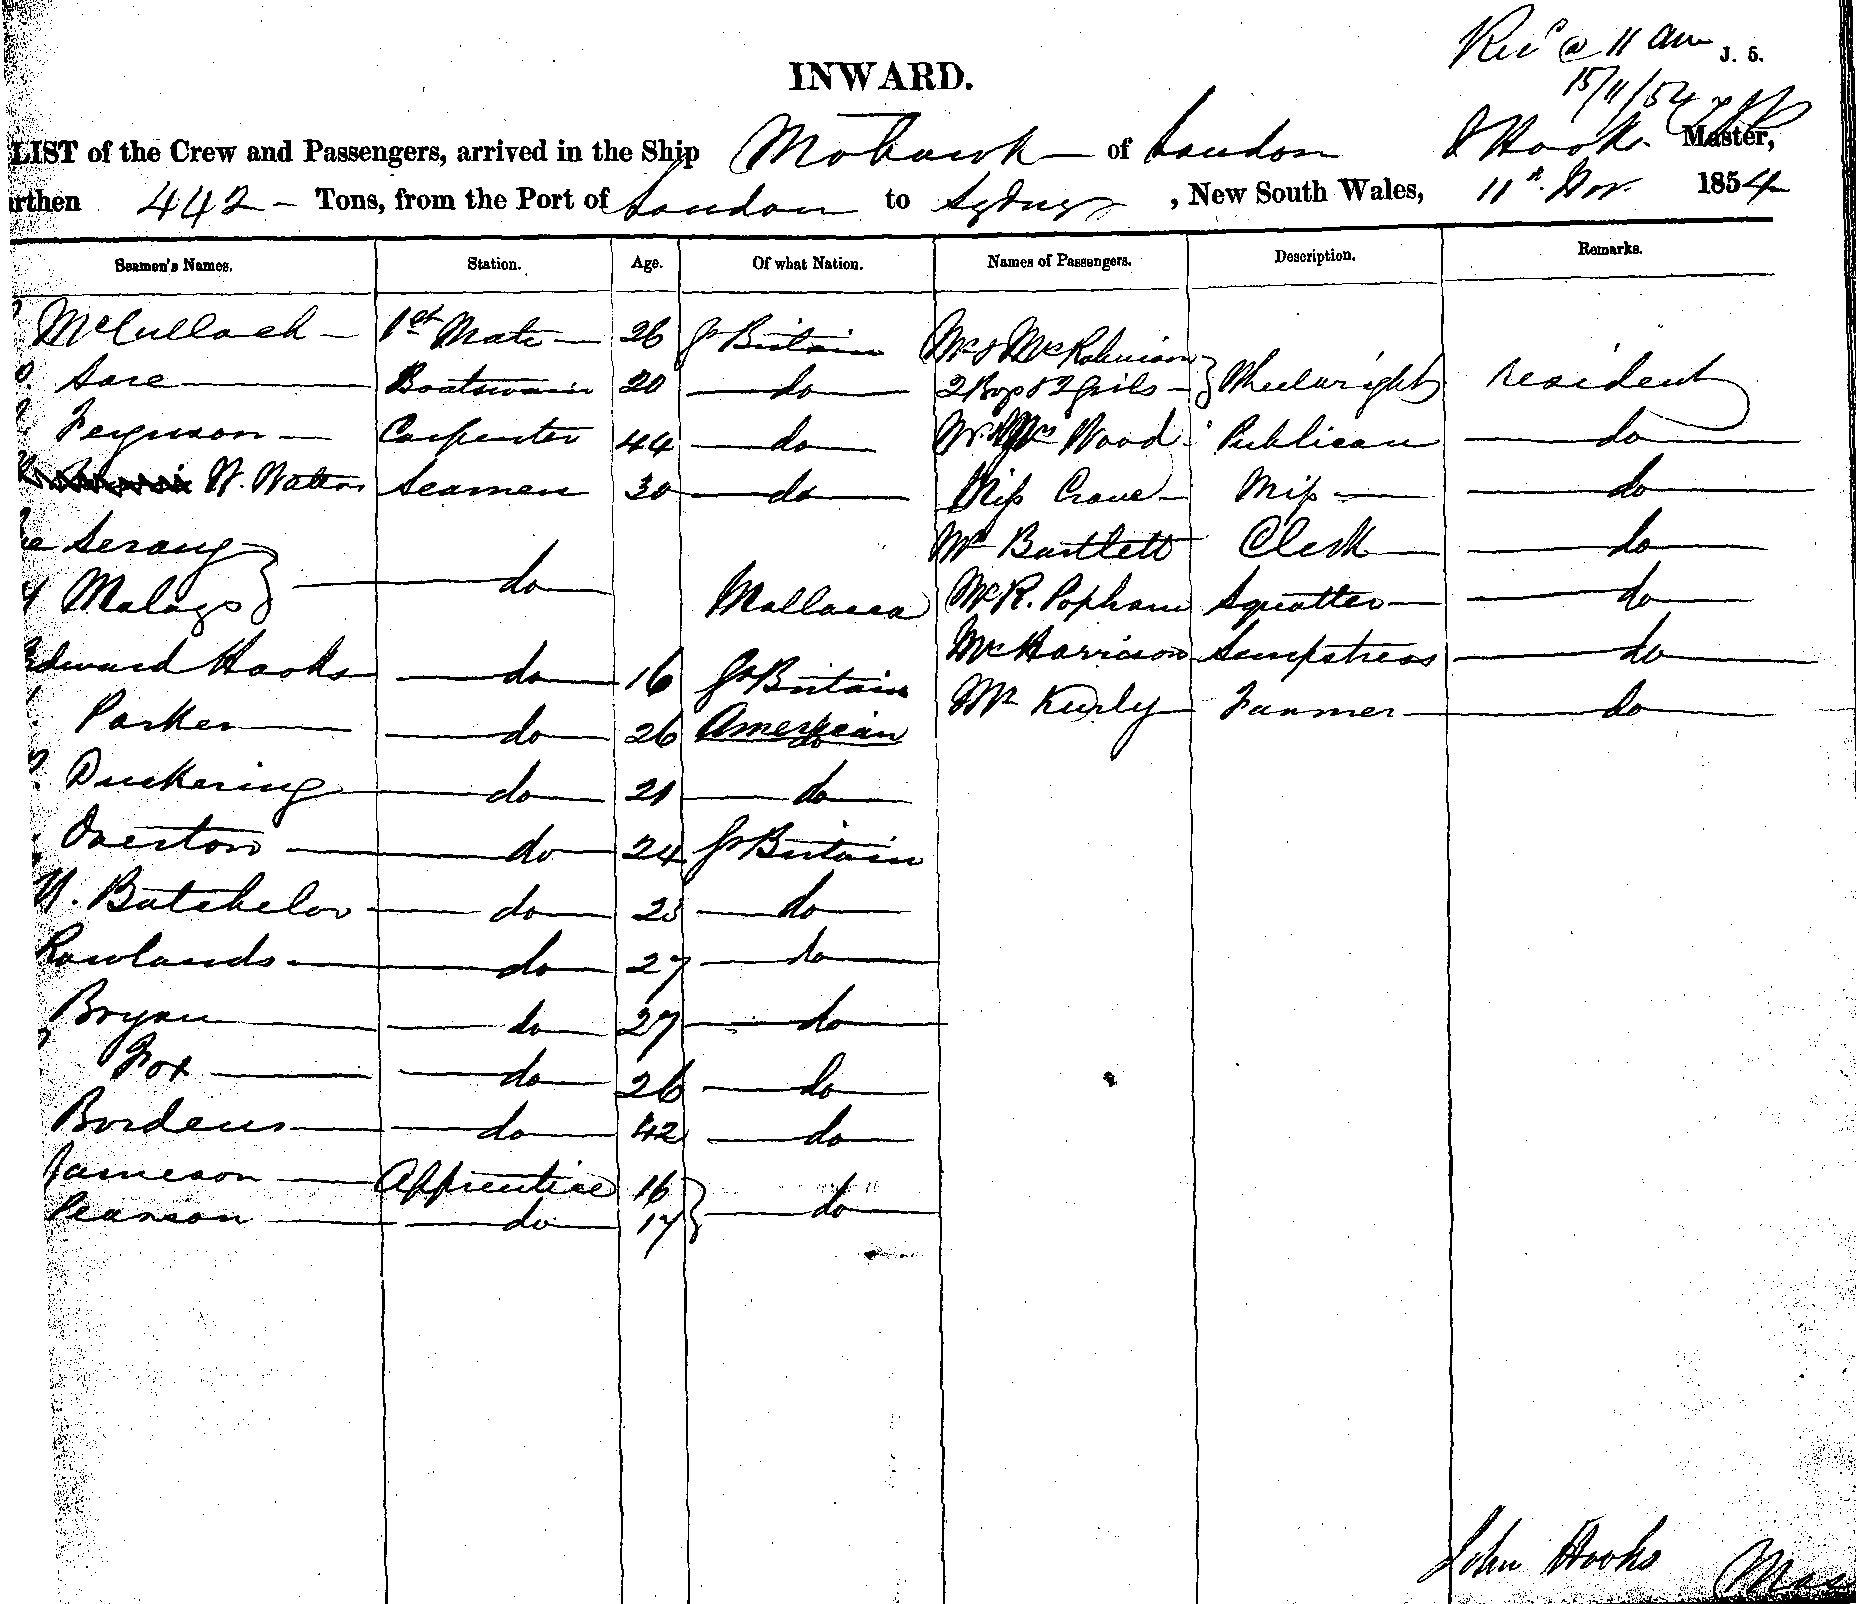 Rec'd @ 11 am J. 5.
15/11/54
INWARD.
LIST of the Crew and Passengers, arrived in the Ship Mohawk of London J Hooks Master,
rthen 442 Tons, from the Port of London to Sydney, New South Wales, 11th Nov. 1854
Seamen's Names. Station. Age. Of what Nation. Names of Passengers. Description. Remarks.
McCullach 1st Mate 26 Gt Britain Mr & Mrs Robinson
Sare Boatswain 20 do 2 Boys & 2 Girls Wheelwright resident
Ferguson Carpenter 44 do Mr & Mrs Wood Publican do
W. Watters Seamen 30 do Miss Crane Miss do
Serang Mr Bartlett Clerk do
Malays do Mallacca Mr R. Popham Squatter do
Edward Hooks do 16 Gt Britain Mrs Harrison Sempstress do
Parker do 26 American Mr Kurly Farmer do
Duckering do 21 do
Overton do 24 Gt Britain
W. Batchelor do 23 do
Rowlands do 27 do
Bryan do 27 do
Fox do 26 do
Bordens do 42 do
Jameson Apprentice 16
Pearson do 17 do
John Hooks Mas